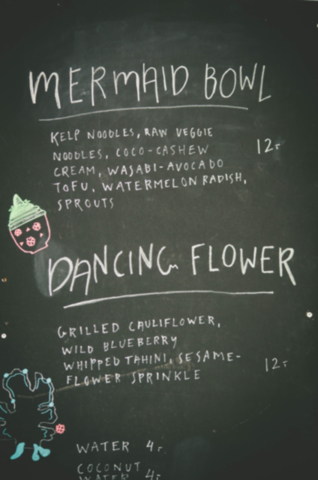 MERMAID BOWL
KELP NOODLES, RAW VEGGIE
NOODLES, COCO-CASHEW 12-
CREAM, WASABI-AVOCADO
TOFU, WATERMELON RADISH,
SPROUTS
DANCING FLOWER
GRILLED CAULIFLOWER,
WILD BLUEBERRY
WHIPPED TAHINI, SESAME- 12-
FLOWER SPRINKLE
WATER 4-
COCONUT
WATER 4-